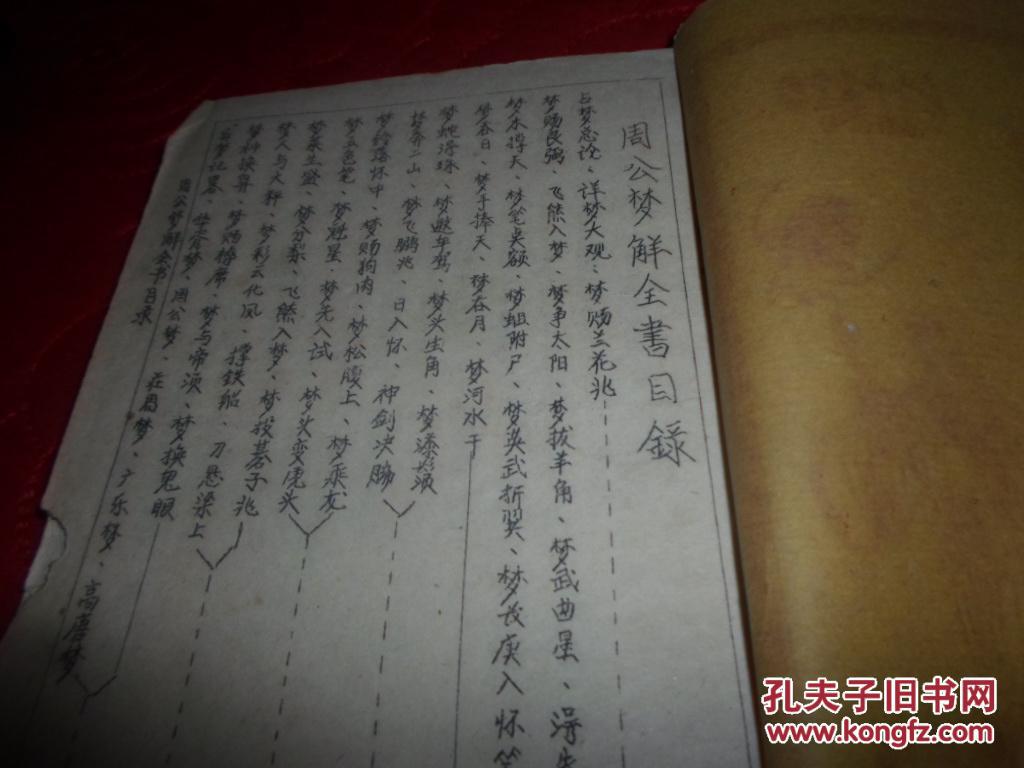 周公梦解全書目錄
占梦总论、详梦大观、梦赐兰花兆
梦赐良弼、飞熊入梦、梦争太阳、梦拔羊角、梦武曲星、得先
梦木撑天、梦笔点额、梦蛆附尸、梦英武折翼、梦长庚入怀等
梦吞日、梦手捧天、梦吞月、梦河水干
梦蛇得珠、梦 车驾、梦头生角、梦漆须
梦弃二山、梦飞鹏兆、日入怀、神剑决肠
梦铃落怀中、梦赐狗肉、梦松腹上、梦乘龙
梦五色笔、梦魁星、梦先入试、梦头变虎头
梦床生 、梦分梨、飞熊入梦、梦投碁子兆
梦人与大秤、梦彩云化凤、撑铁船、刀悬梁上
梦神换鼻、梦赐椅席、梦与帝须、梦换鬼眼
占梦记 、 梦、周公梦、在周梦、广乐梦、高唐梦
周公梦解全书目录
孔夫子旧书网
www.kongfz.com